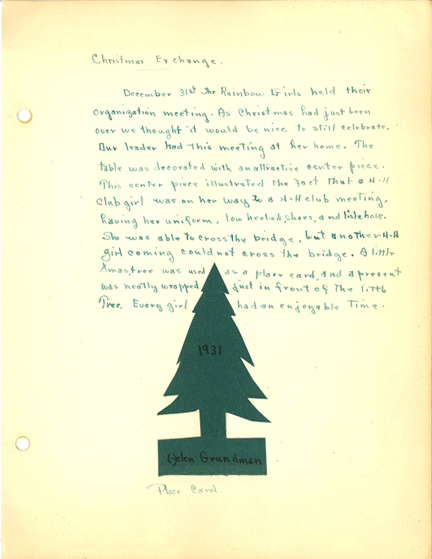 Christmas Exchange.
December 31st The Rainbow Girls held their
organization meeting. As Christmas had just been
over we thought it would be nice to still celebrate.
Our leader had this meeting at her home. The
table was decorated with an attractive center piece.
This center piece illustrated the fact that a 4-H
club girl was on her way to a 4-H club meeting,
having her uniform, low heeled shoes, and lisle hose.
She was able to cross the bridge, but another 4-H
girl coming could not cross the bridge. A little
Xmas tree was used as a place card, and a present
was neatly wrapped just in front of the little
Tree. Every girl had an enjoyable Time.
1931
Helen Grandman
Place Card.